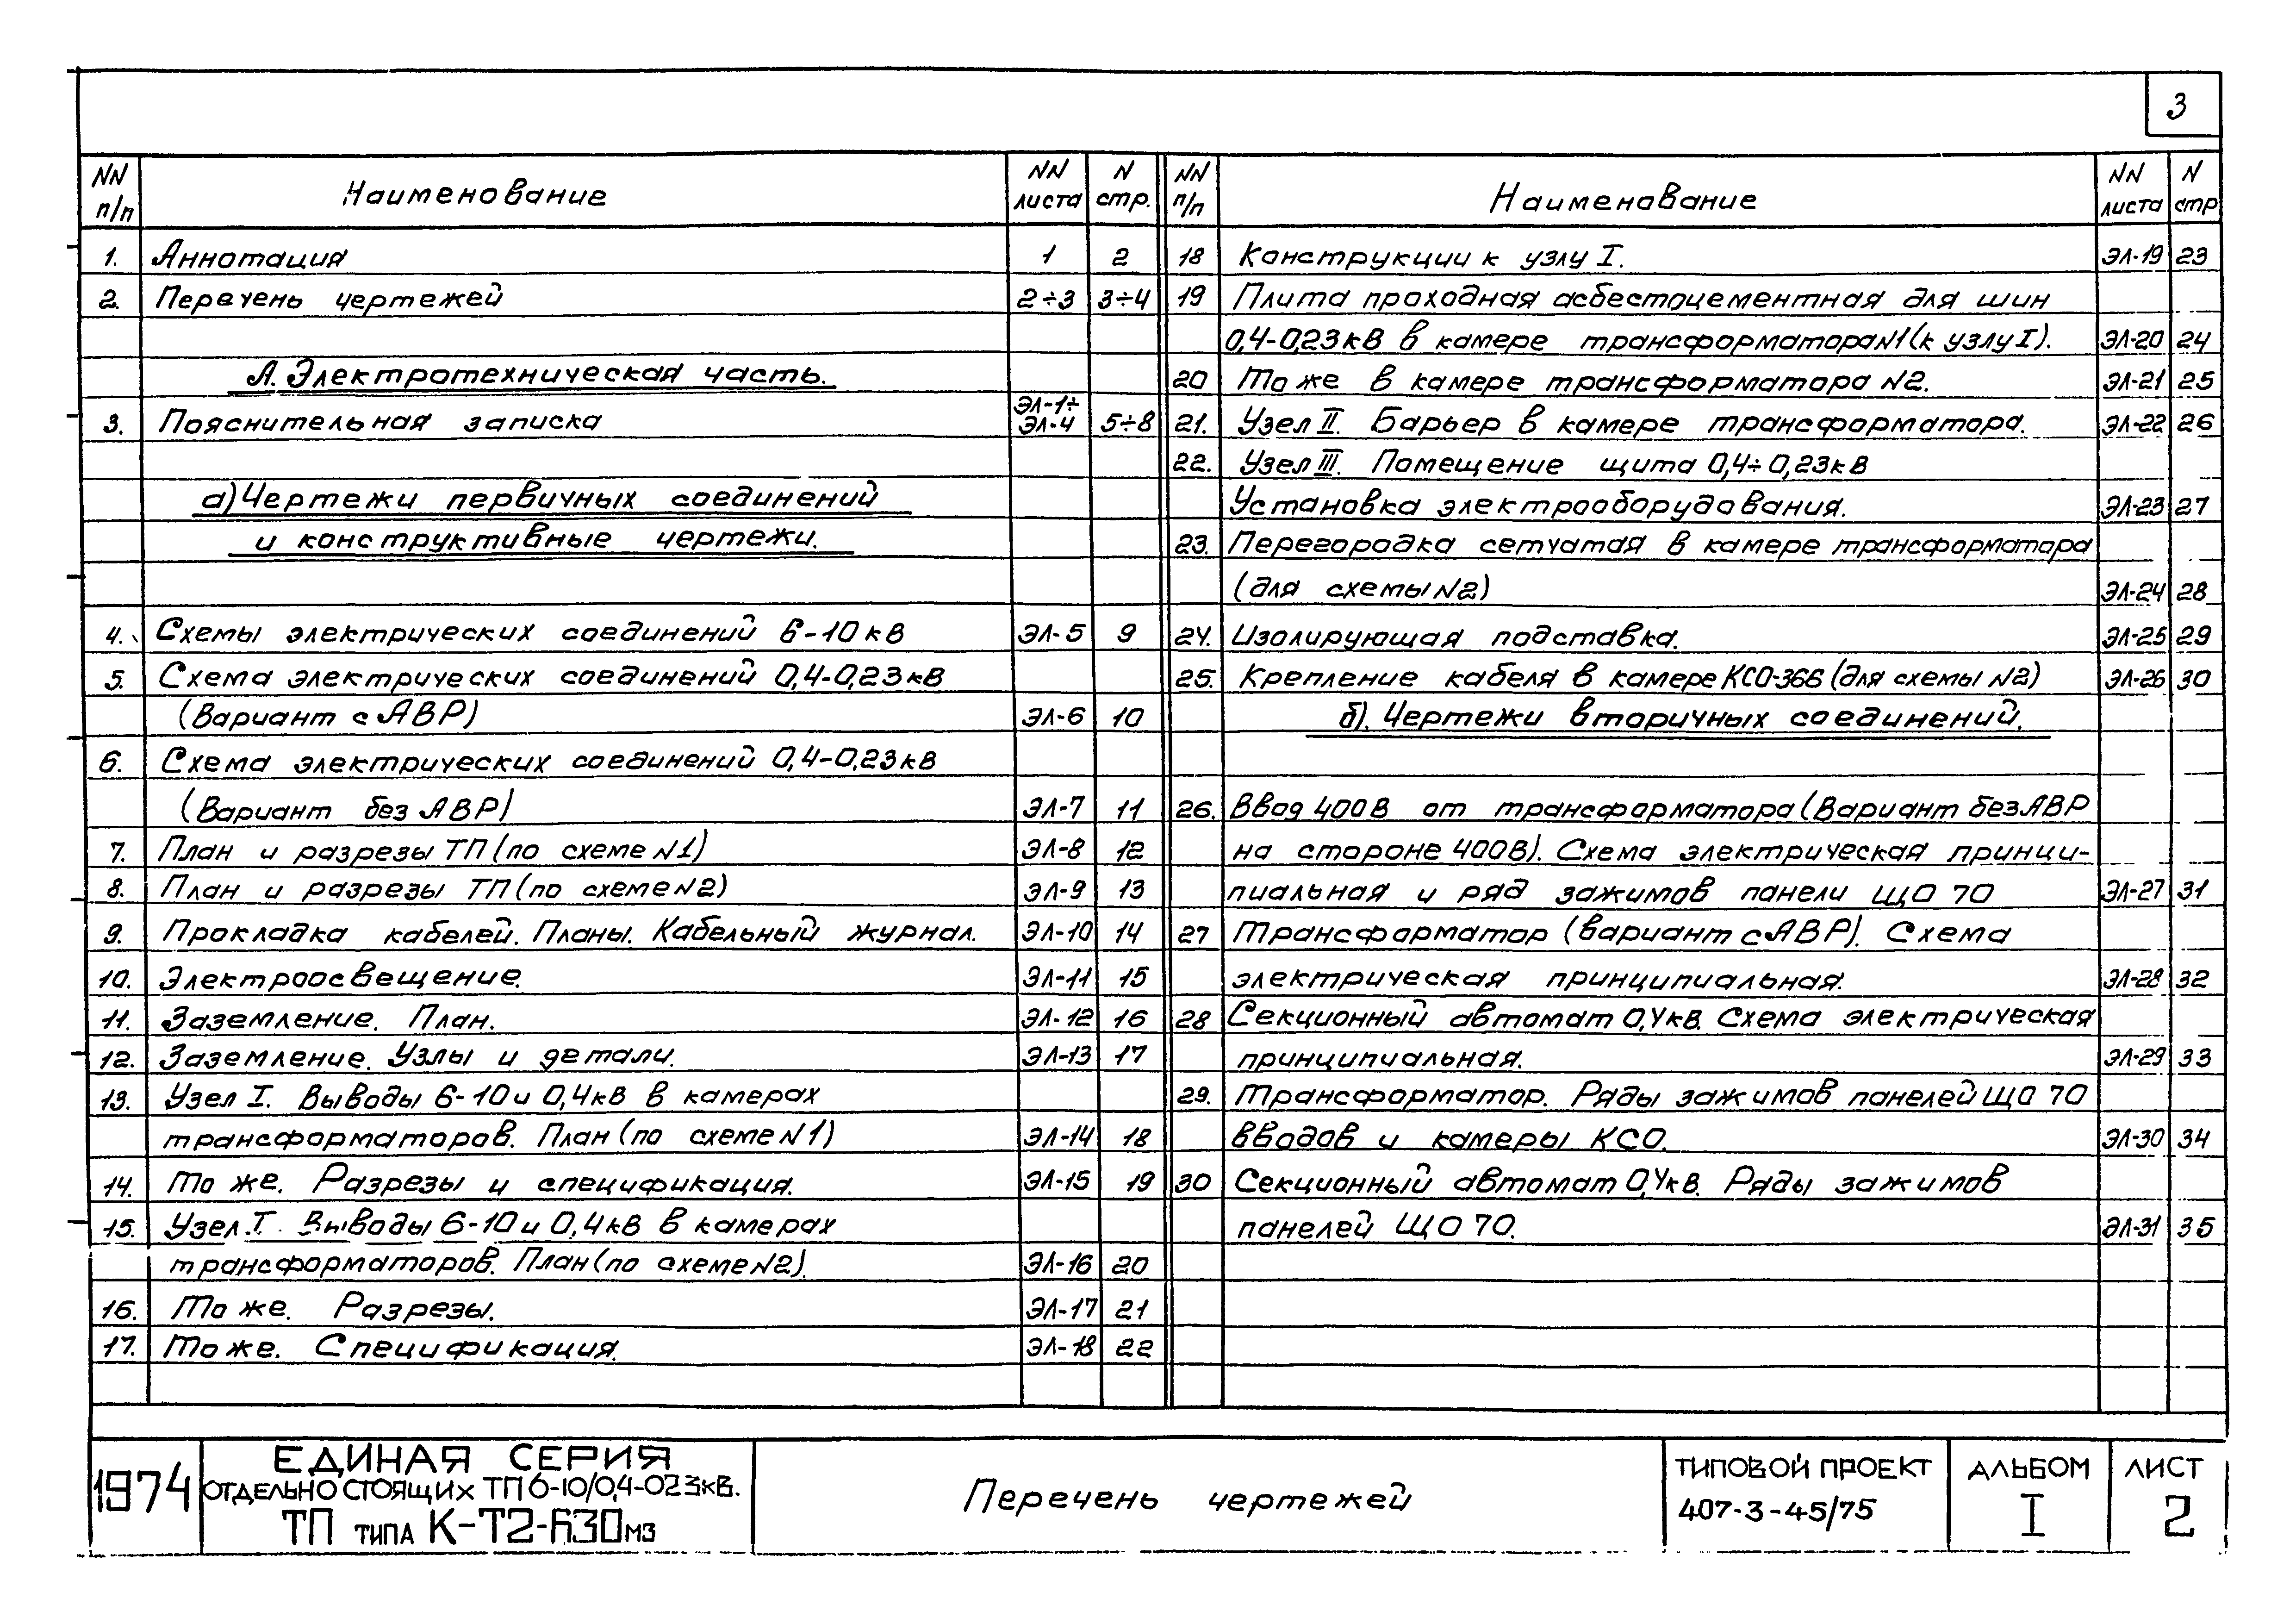 3
NN п/п Наименование NN листа N стр.
1. Аннотация 1 2
2. Перечень чертежей 2÷3 3÷4
А. Электротехническая часть.
3. Пояснительная записка ЭЛ-1÷ ЭЛ-4 5÷8
а) Чертежи первичных соединений
и конструктивные чертежи.
4. Схемы электрических соединений 6-10кВ ЭЛ-5 9
5. Схема электрических соединений 0,4-0,23кВ
(Вариант с АВР) ЭЛ-6 10
6. Схема электрических соединений 0,4-0,23кВ
(Вариант без АВР) ЭЛ-7 11
7. План и разрезы ТП (по схеме N1) ЭЛ-8 12
8. План и разрезы ТП (по схеме N2) ЭЛ-9 13
9. Прокладка кабелей. Планы. Кабельный журнал. ЭЛ-10 14
10. Электроосвещение. ЭЛ-11 15
11. Заземление. План. ЭЛ-12 16
12. Заземление. Узлы и детали. ЭЛ-13 17
13. Узел I. Выводы 6-10 и 0,4кВ в камерах
трансформаторов. План (по схеме N1) ЭЛ-14 18
14. То же. Разрезы и спецификация. ЭЛ-15 19
15. Узел I. Выводы 6-10 и 0,4кВ в камерах
трансформаторов. План (по схеме N2). ЭЛ-16 20
16. То же. Разрезы. ЭЛ-17 21
17. То же. Спецификация. ЭЛ-18 22
NN п/п Наименование NN листа N стр
18 Конструкции к узлу I. ЭЛ-19 23
19 Плита проходная асбестоцементная для шин
0,4-0,23кВ в камере трансформатора N1 (к узлу I). ЭЛ-20 24
20 То же в камере трансформатора N2. ЭЛ-21 25
21. Узел II. Барьер в камере трансформатора. ЭЛ-22 26
22. Узел III. Помещение щита 0,4÷0,23кВ
Установка электрооборудования. ЭЛ-23 27
23. Перегородка сетчатая в камере трансформатора
(для схемы N2) ЭЛ-24 28
24. Изолирующая подставка. ЭЛ-25 29
25. Крепление кабеля в камере КСО-366 (для схемы N2) ЭЛ-26 30
б). Чертежи вторичных соединений.
26. Ввод 400В от трансформатора (Вариант без АВР
на стороне 400В). Схема электрическая принци-
пиальная и ряд зажимов панели ЩО 70 ЭЛ-27 31
27 Трансформатор (вариант с АВР). Схема
электрическая принципиальная. ЭЛ-28 32
28 Секционный автомат 0,4кВ. Схема электрическая
принципиальная. ЭЛ-29 33
29. Трансформатор. Ряды зажимов панелей ЩО 70
вводов и камеры КСО. ЭЛ-30 34
30 Секционный автомат 0,4кВ. Ряды зажимов
панелей ЩО 70. ЭЛ-31 35
1974
ЕДИНАЯ СЕРИЯ
ОТДЕЛЬНО СТОЯЩИХ ТП 6-10/0,4-023кВ.
ТП ТИПА К-Т2-630м3
Перечень чертежей
ТИПОВОЙ ПРОЕКТ
407-3-45/75
АЛЬБОМ
I
ЛИСТ
2